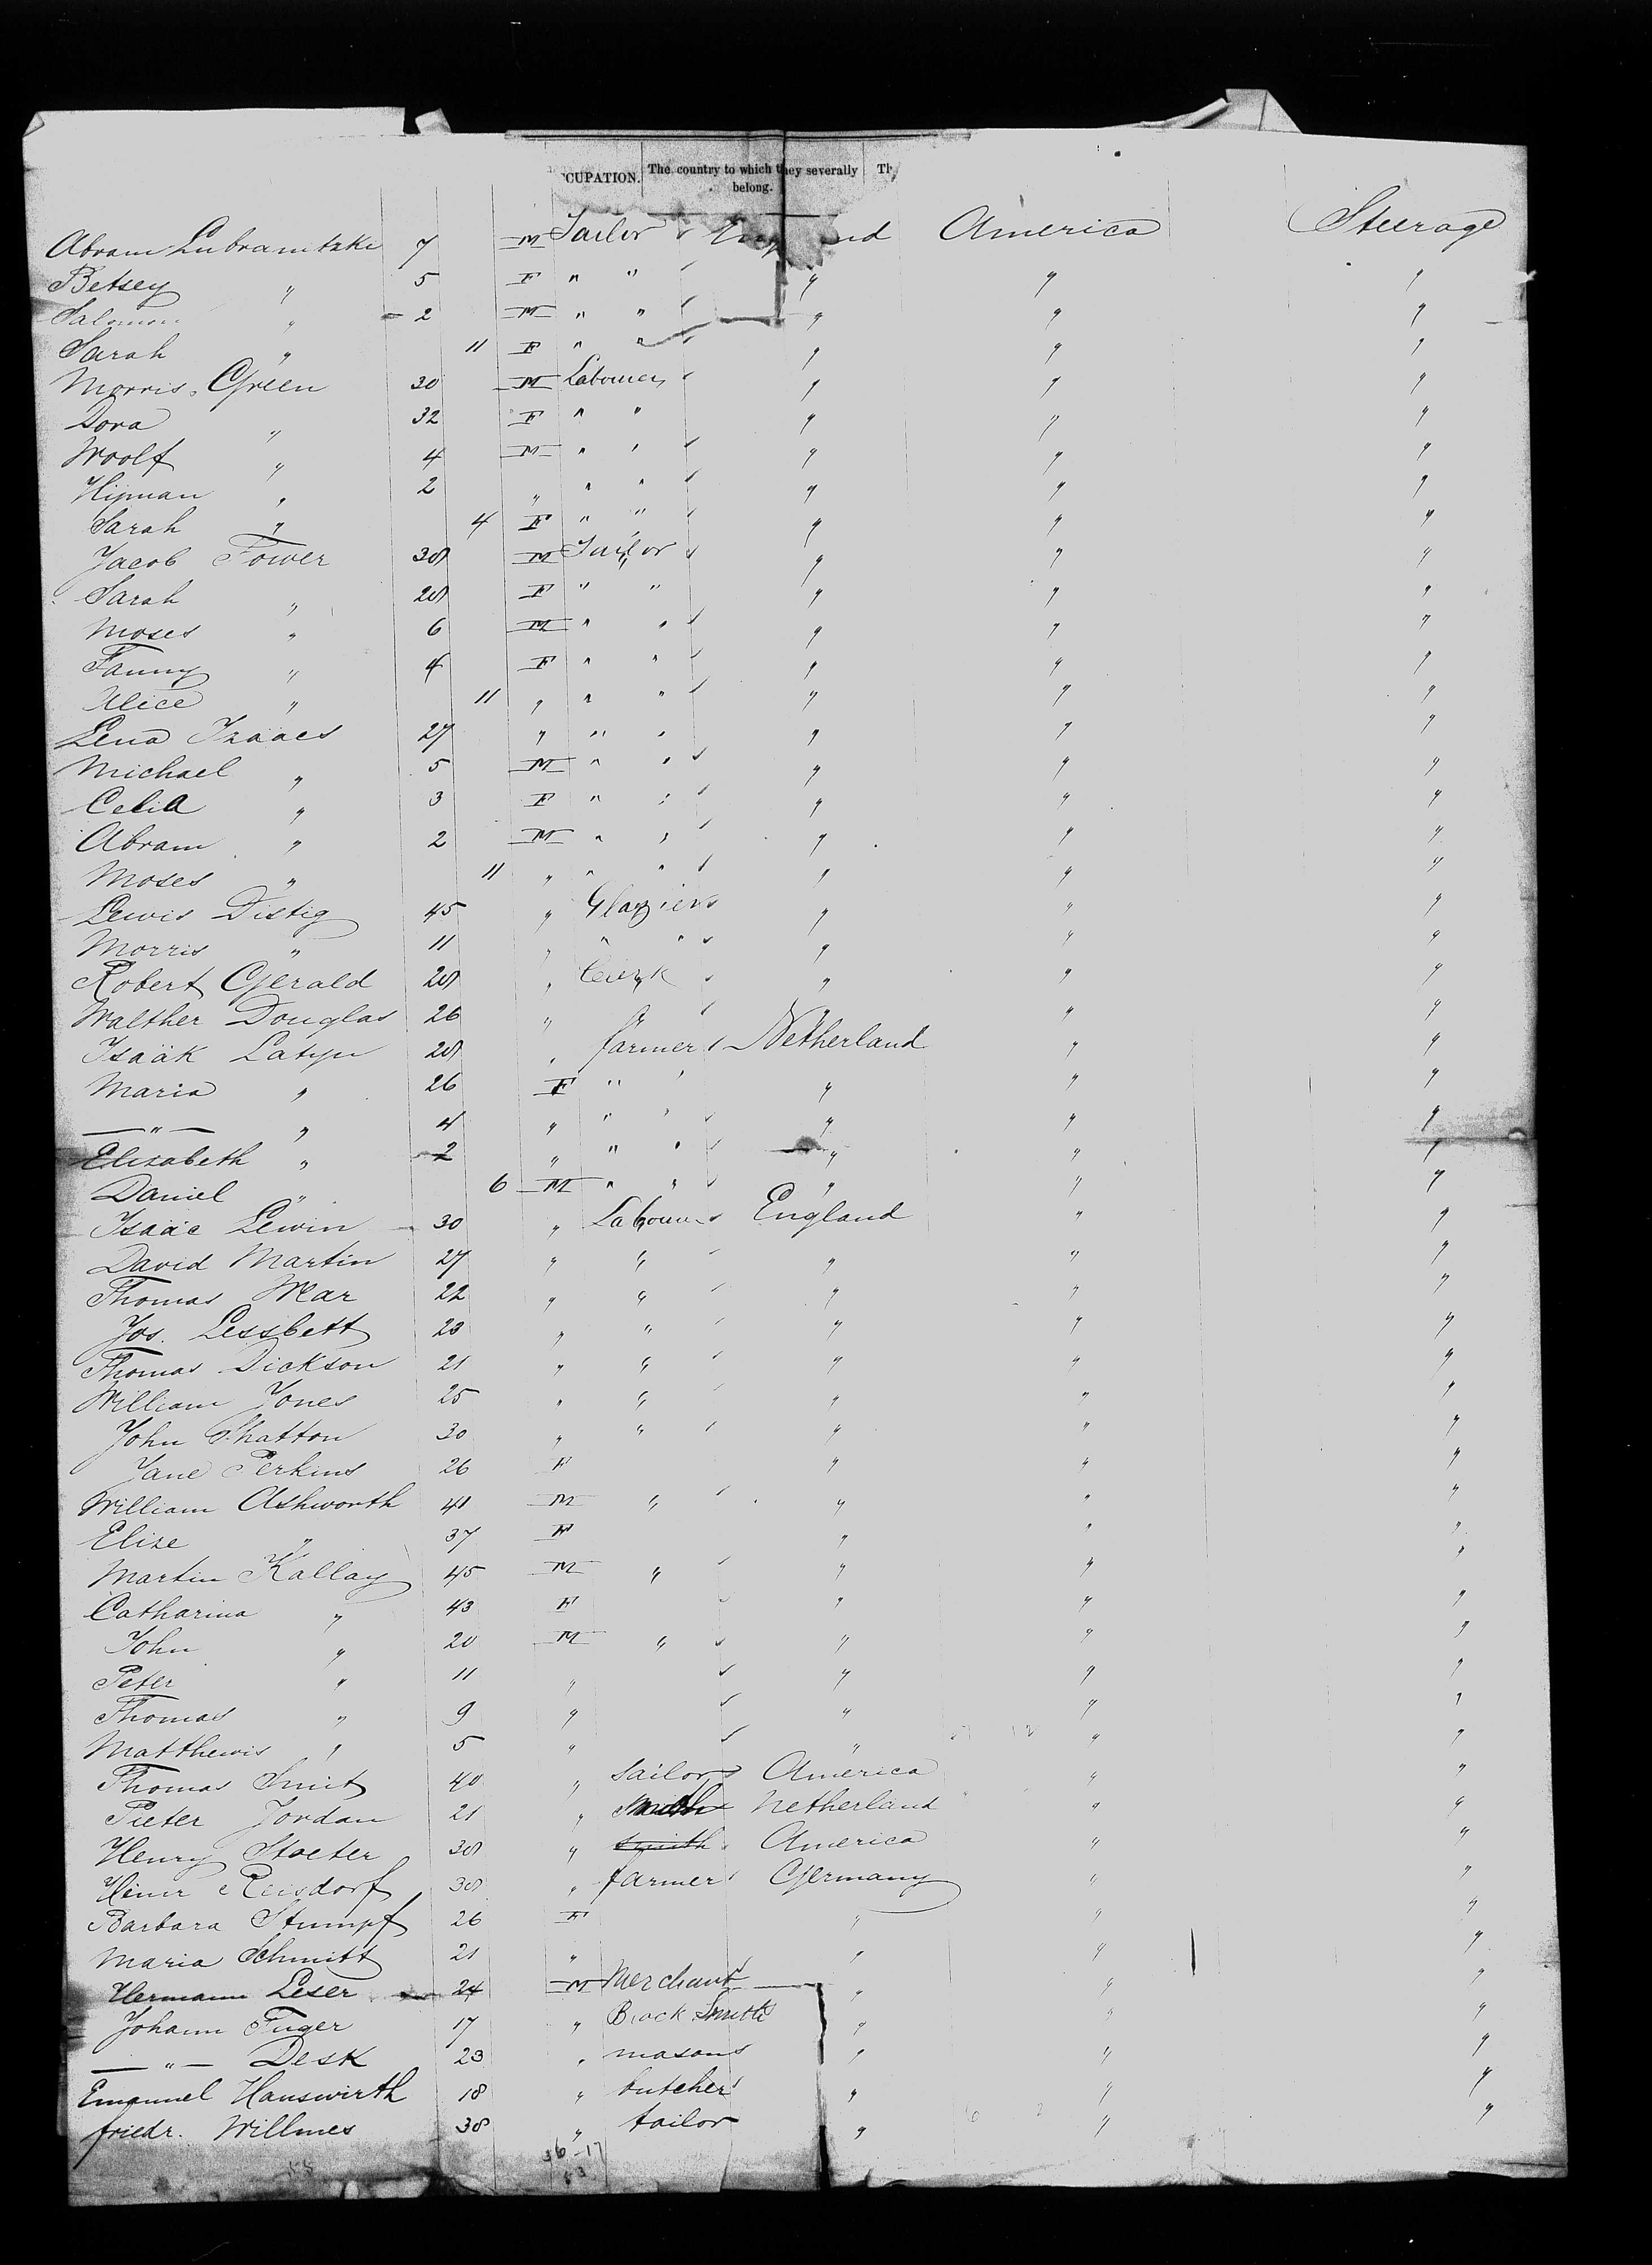 CUPATION. The country to which they severally belong. Th
Abram Lubramtzke 7 M Tailor England America Steerage
Betsey " 5 F " " " " "
Salomon " 2 M " " " " "
Sarah " 11 F " " " " "
Morris Green 30 M Labourer " " "
Dora " 32 F " " " " "
Woolf " 4 M " " " " "
Hijman " 2 " " " " " "
Sarah " 4 F " " " " "
Jacob Fower 38 M Tailor " " "
Sarah " 28 F " " " " "
Moses " 6 M " " " " "
Fanny " 4 F " " " " "
Alice " 11 " " " " " "
Lena Izaacs 27 " " " " " "
Michael " 5 M " " " " "
Celia " 3 F " " " " "
Abram " 2 M " " " " "
Moses " 11 " " " " " "
Lewis Distig 45 " Glaziers " " "
Morris " 11 " " " " " "
Robert Gerald 28 " Clerk " " "
Walther Douglas 26 " " " " "
Isaäk Latyn 28 " farmer Netherland " "
Maria " 26 F " " " " "
—"— " 4 " " " " " "
Elizabeth " 2 " " " " " "
Daniel " 6 M " " " " "
Isaäc Lewin 30 " Labourer England " "
David Martin 27 " " " " "
Thomas Mar 22 " " " " "
Jos. Lessbett 23 " " " " "
Thomas Dickson 21 " " " " "
William Jones 25 " " " " "
John Shatton 30 " " " " "
Jane Perkins 26 F " " "
William Ashworth 41 M " " " "
Elise " 37 F " " "
Martin Kallay 45 M " " " "
Catharina " 43 F " " "
John " 20 M " " " "
Peter " 11 " " " "
Thomas " 9 " " " "
Matthewis " 5 " " " "
Thomas Smit 40 " Sailors America " "
Pieter Jordan 21 " Smith Netherland " "
Henry Stoeter 38 " Smith America " "
Heinr Reisdorf 38 " farmer Germany " "
Barbara Stumpf 26 F " " "
Maria Schmitt 21 " " " "
Hermann Leser 24 M Merchant " " "
Johann Fuger 17 " Black Smith " " "
—"— Desk 23 " masons " " "
Emanuel Hauswirth 18 " butcher " " "
friedr. Willmes 38 " tailor " " "
36-17
53